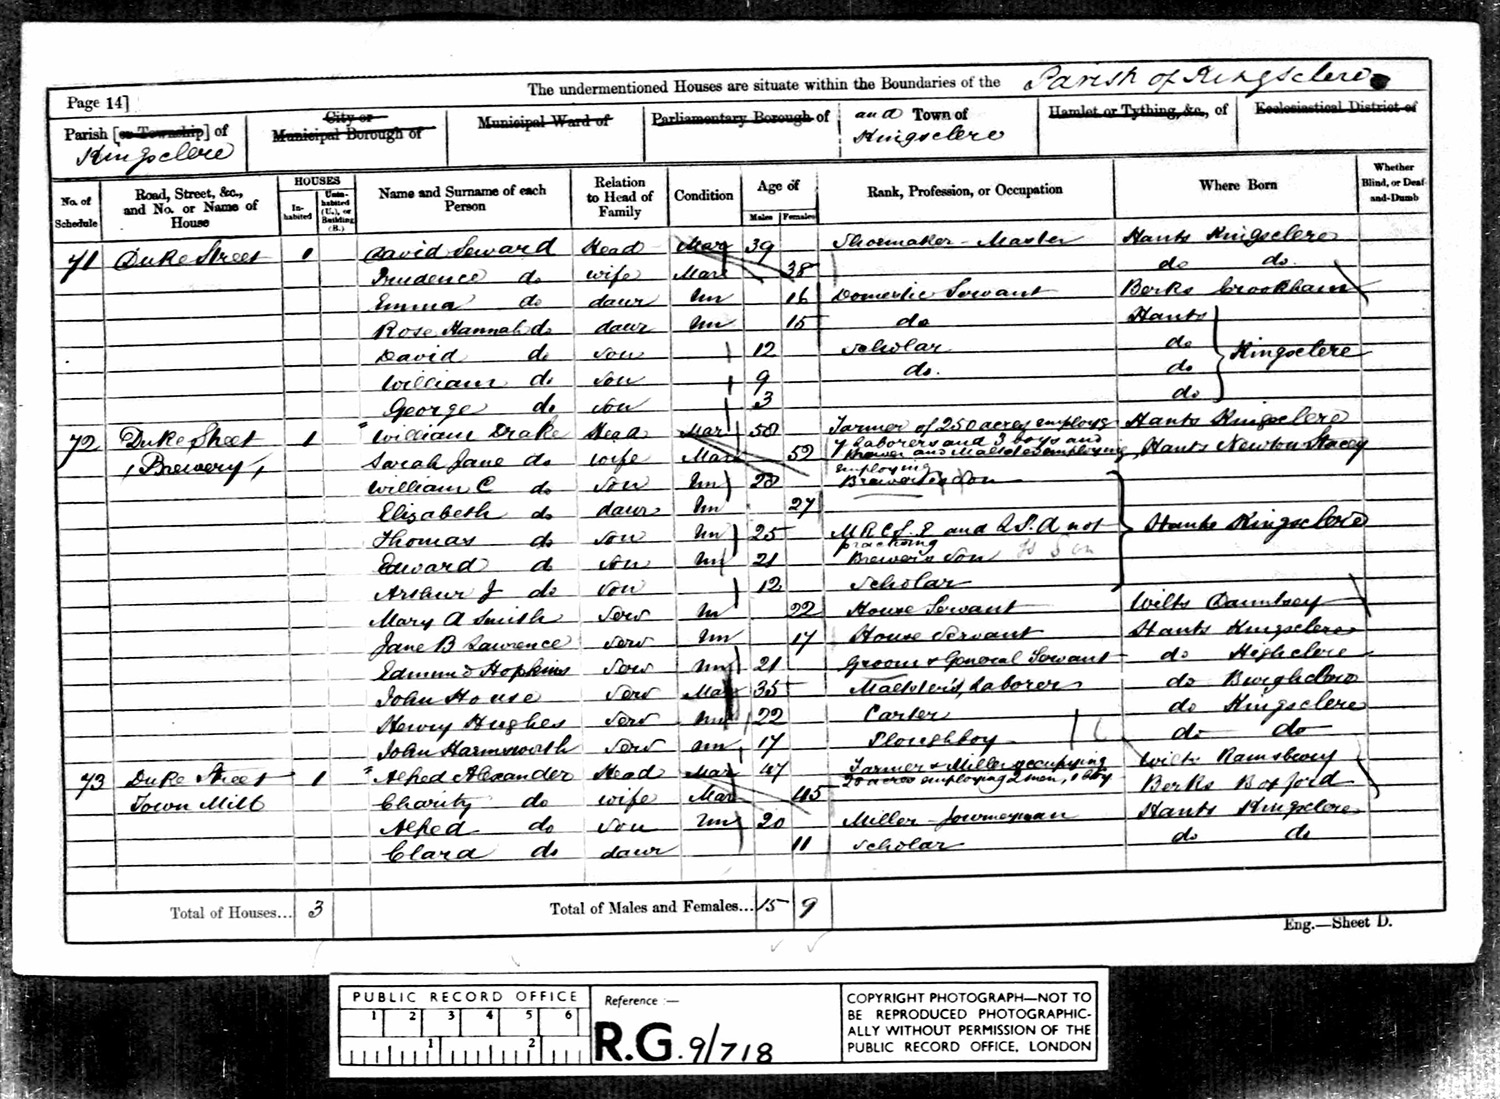 The undermentioned Houses are situate within the Boundaries of the Parish of Kingsclere
Page 14]
Parish [or Township] of Kingsclere
City or Municipal Borough of
Municipal Ward of
Parliamentary Borough of
and Town of Kingsclere
Hamlet or Tything, &c., of
Ecclesiastical District of
No. of Schedule
Road, Street, &c., and No. or Name of House
HOUSES
Inhabited
Uninhabited (U.), or Building (B.)
Name and Surname of each Person
Relation to Head of Family
Condition
Age of
Males
Females
Rank, Profession, or Occupation
Where Born
Whether Blind, or Deaf-and-Dumb
71 Duke Street 1 David Seward Head Mar 39 Shoemaker - Master Hants Kingsclere
Prudence do wife Mar 38 do do
Emma do daur Un 16 Domestic Servant Berks Crookham
Rose Hannah do daur Un 15 do Hants
David do son 12 Scholar do Kingsclere
William do son 9 do. do
George do son 3 do
72 Duke Street 1 William Drake Head Mar 58 Farmer of 250 acres employs Hants Kingsclere
Brewery Sarah Jane do wife Mar 52 7 laborers and 3 boys and Brewer and Maltster employing Hants Newton Stacey
employing
William C do son Un 28 Brewer's son
Elizabeth do daur Un 27
Thomas do son Un 25 M.R.C.S.E and L.S.A not Hants Kingsclere
practising
Edward do son Un 21 Brewer's son
Arthur J do son 12 Scholar
Mary A Smith Serv Un 22 House Servant Wilts Dauntsey
Jane B Lawrence Serv Un 17 House Servant Hants Kingsclere
Edmund Hopkins Serv Un 21 Groom & General Servant do Highclere
John House Serv Mar 35 Maltster's Laborer do Burghclere
Henry Hughes Serv Un 22 Carter do Kingsclere
John Harmsworth Serv Un 17 Ploughboy do do
73 Duke Street 1 Alfred Alexander Head Mar 47 Farmer & Miller occupying Wilts Ramsbury
20 acres employing 2 men, 1 boy
Town Mill Charity do wife Mar 45 Berks Boxford
Alfred do son Un 20 Miller - Journeyman Hants Kingsclere
Clara do daur 11 Scholar do do
Total of Houses... 3
Total of Males and Females... 15 9
Eng.—Sheet D.
PUBLIC RECORD OFFICE
1 2 3 4 5 6
1 2
Reference :—
R.G. 9/718
COPYRIGHT PHOTOGRAPH—NOT TO
BE REPRODUCED PHOTOGRAPHIC-
ALLY WITHOUT PERMISSION OF THE
PUBLIC RECORD OFFICE, LONDON